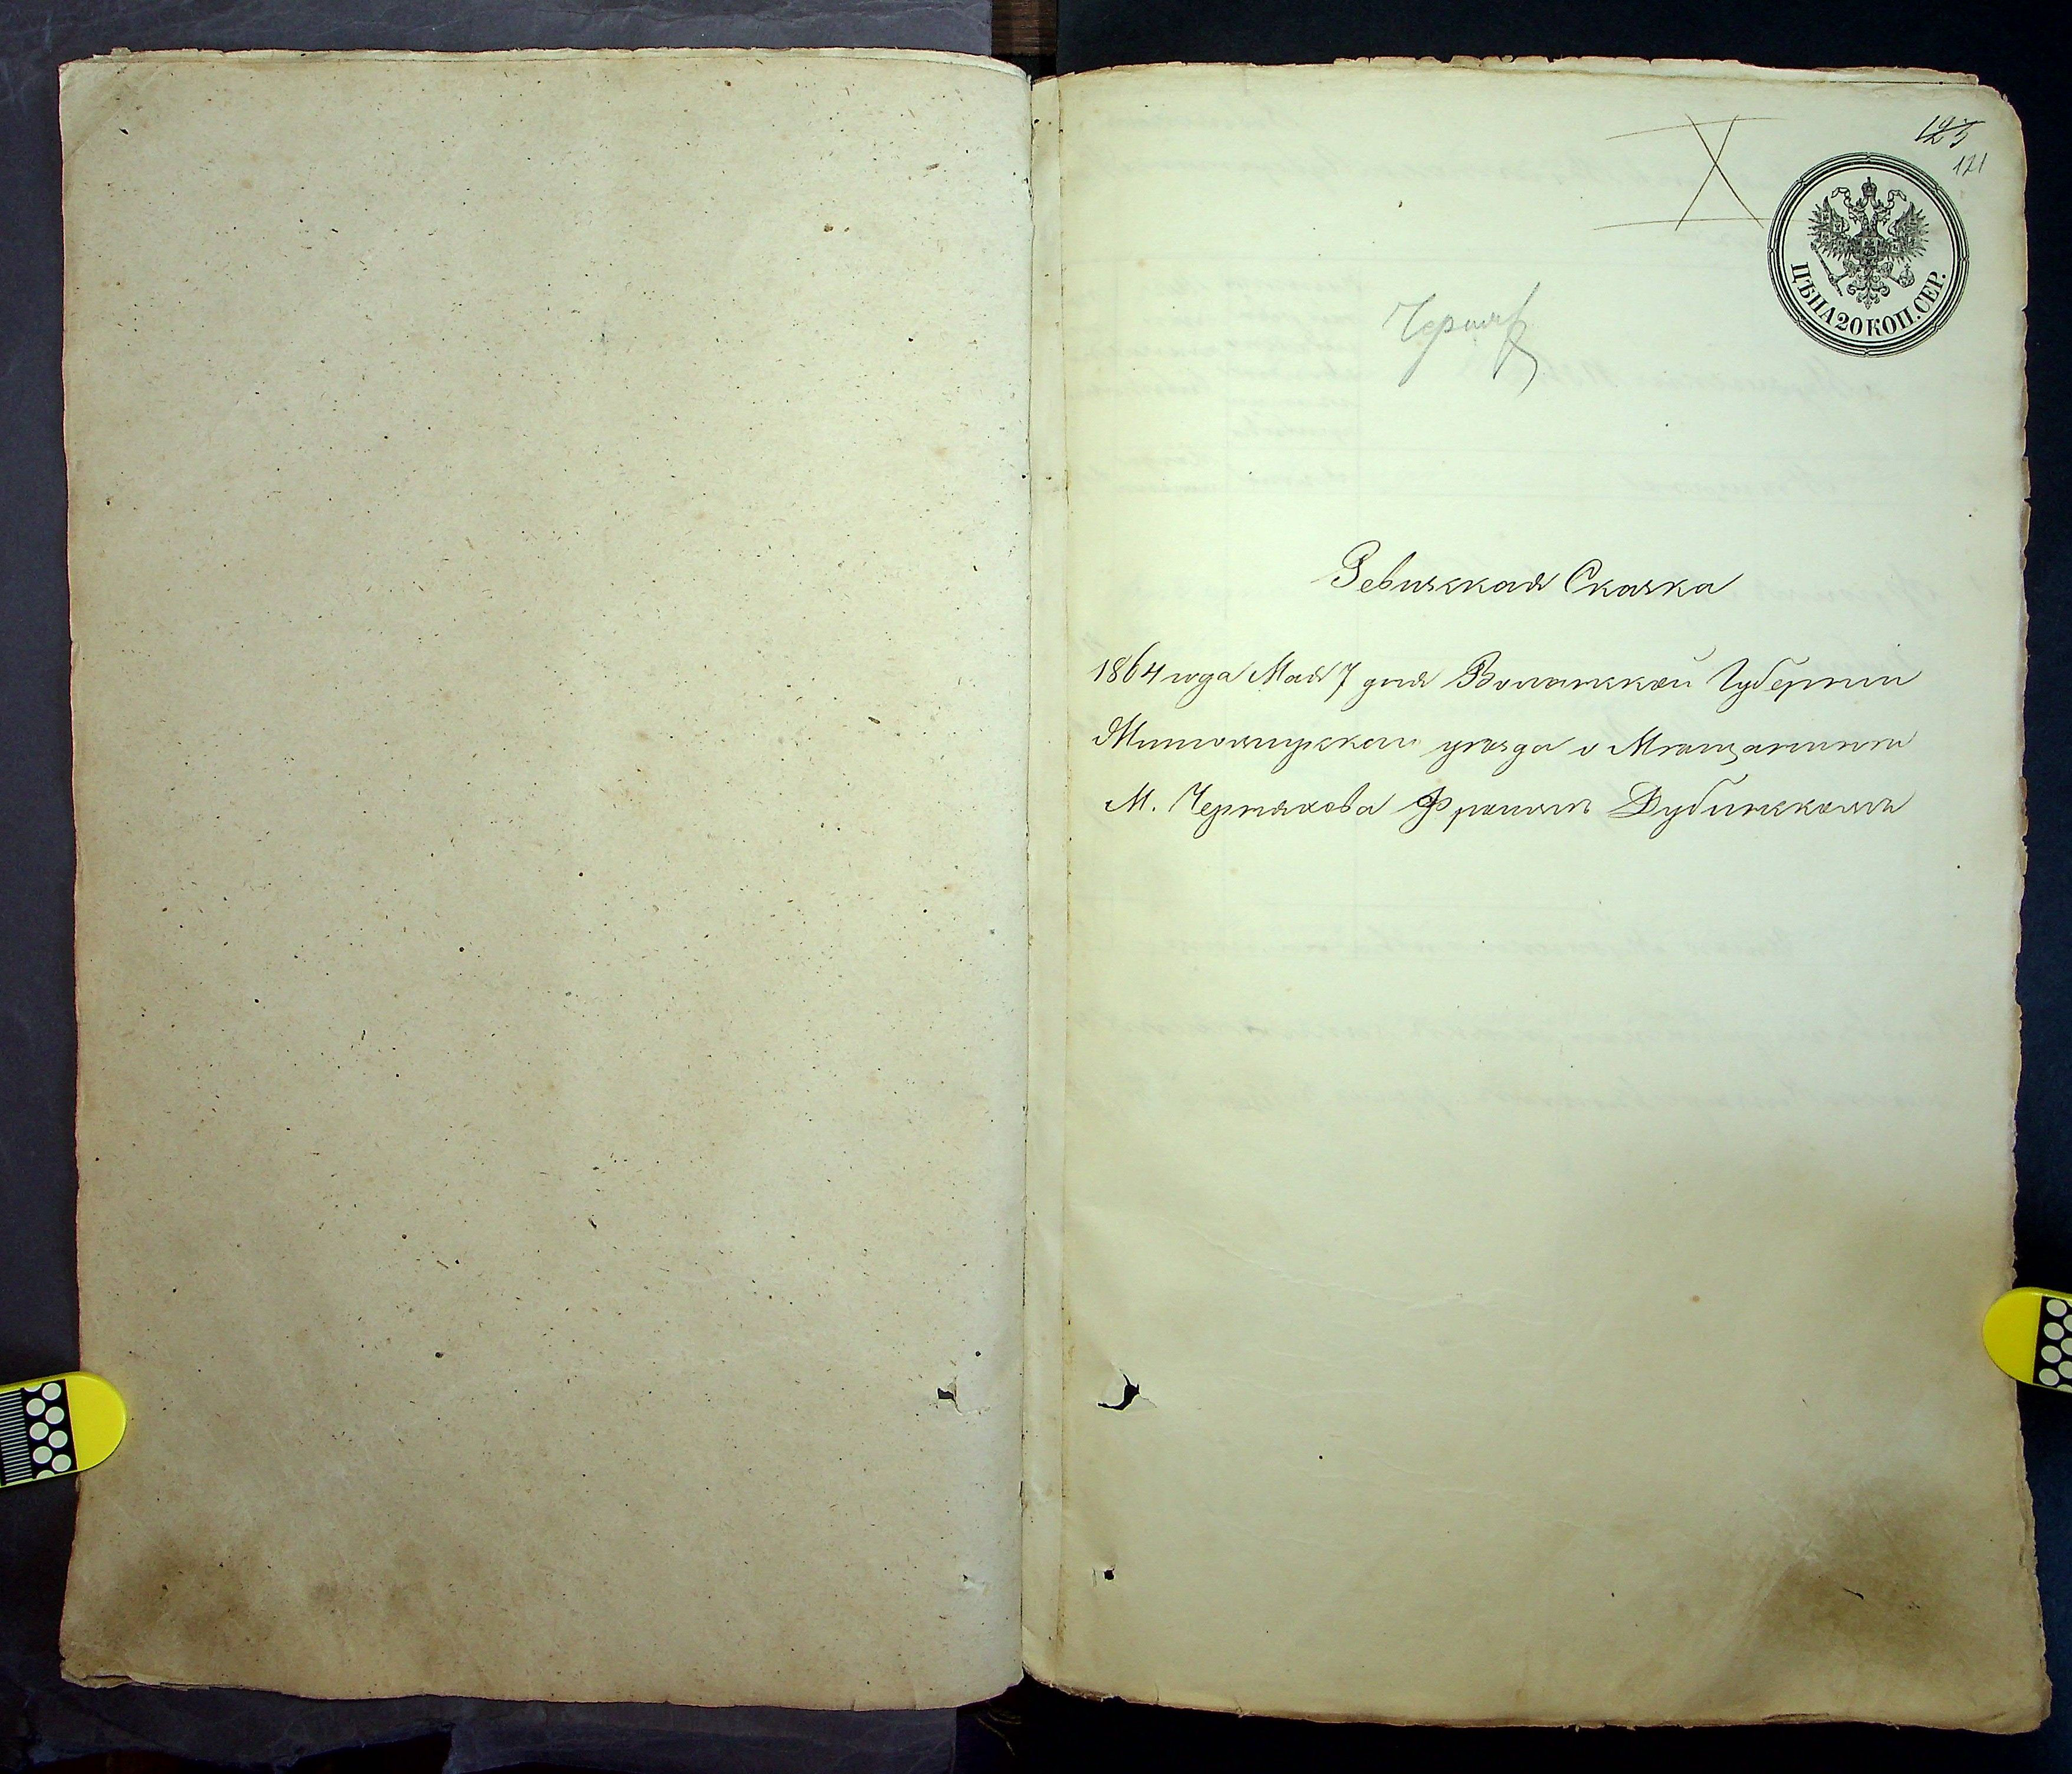 X
125
121
ЦѢНА 20 КОП. СЕР.
Чернях
Ревизская Сказка
1864 года Мая 7 дня Волынской Губерніи
Житомирскаго уѣзда о Мѣщанинѣ
М. Черняхова Францѣ Дубинскомъ